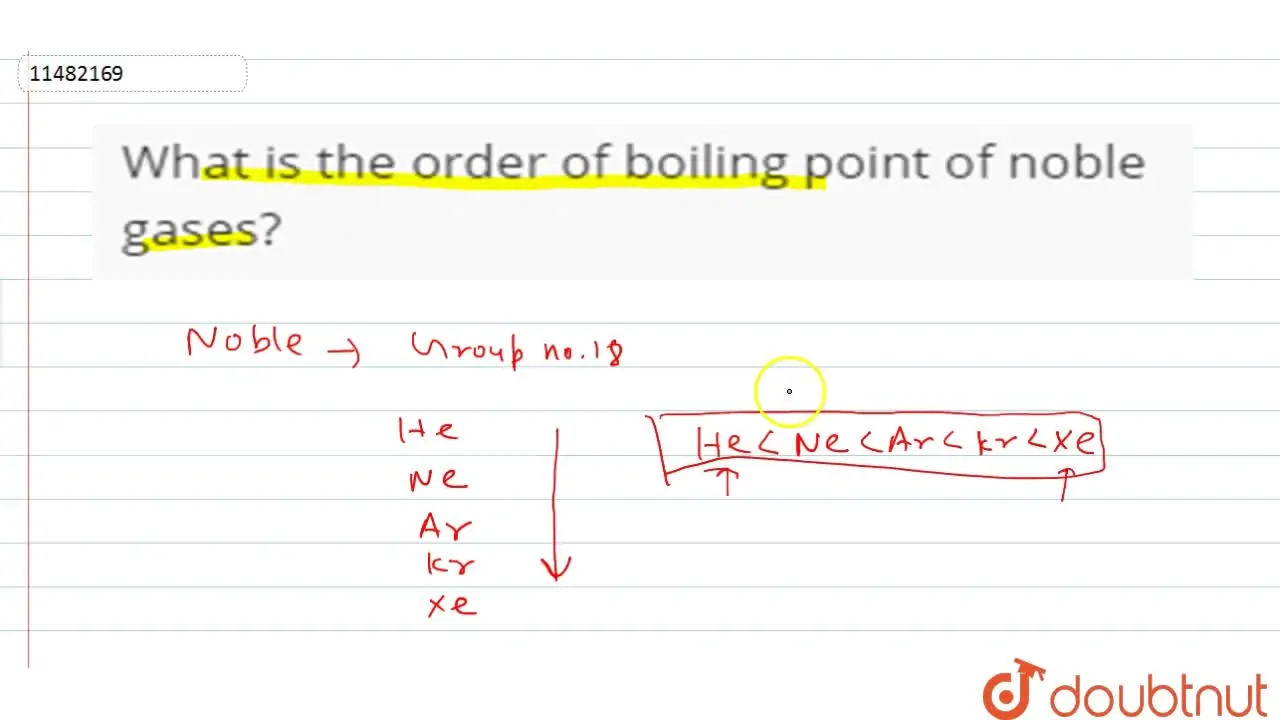 11482169
What is the order of boiling point of noble
gases?
Noble → Group no.18
He
He < Ne < Ar < Kr < Xe
Ne
Ar
Kr
Xe
doubtnut